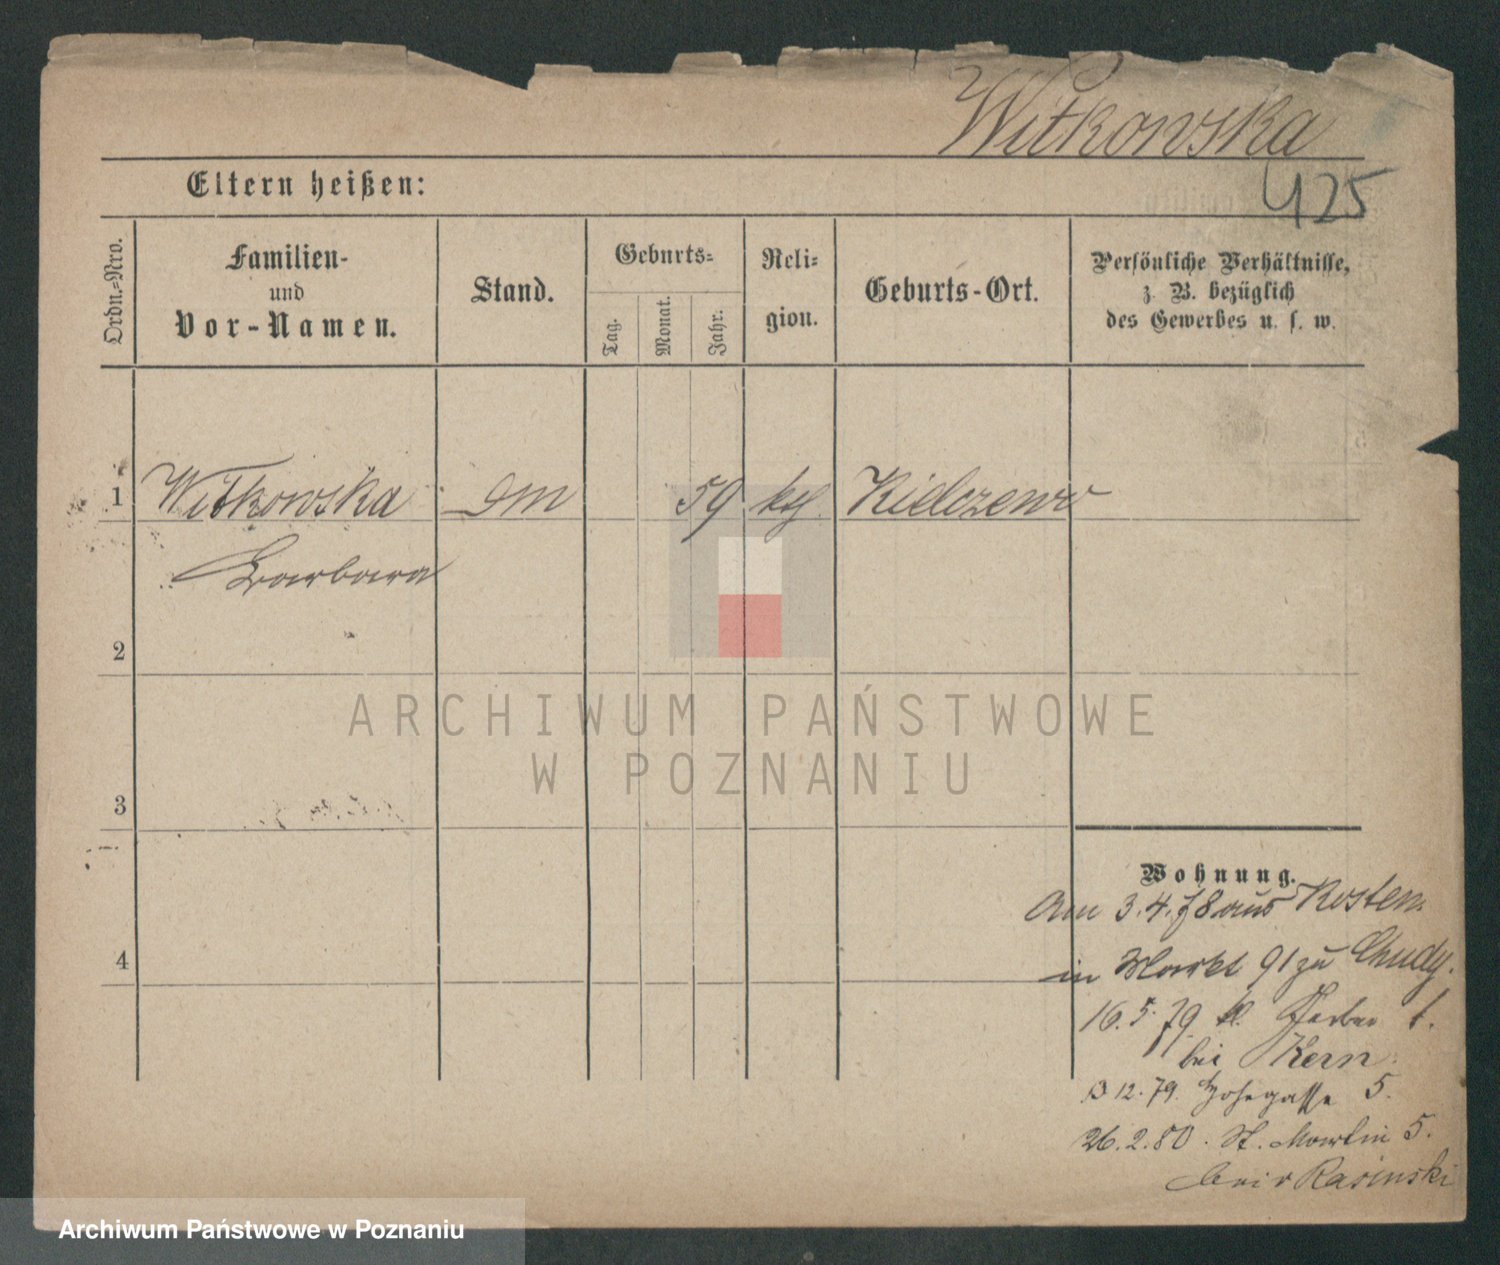 Witkowska
425
Eltern heißen:
Ordn.-Nro.
Familien-
und
Vor-Namen.
Stand.
Geburts-
Tag.
Monat.
Jahr.
Reli-
gion.
Geburts-Ort.
Persönliche Verhältnisse,
z. B. bezüglich
des Gewerbes u. s. w.
1 Witkowska DM 59 kth Kielczewo
Barbara
2
ARCHIWUM PAŃSTWOWE
W POZNANIU
3
Wohnung.
Am 3.4.78 aus Kosten
4
in Markt 91 zu Chudy.
16.5.79 kl. Gerber
bei Kern
13 12.79. Hohegasse 5.
26.2.80. St. Martin 5.
bei v Rasinski
Archiwum Państwowe w Poznaniu